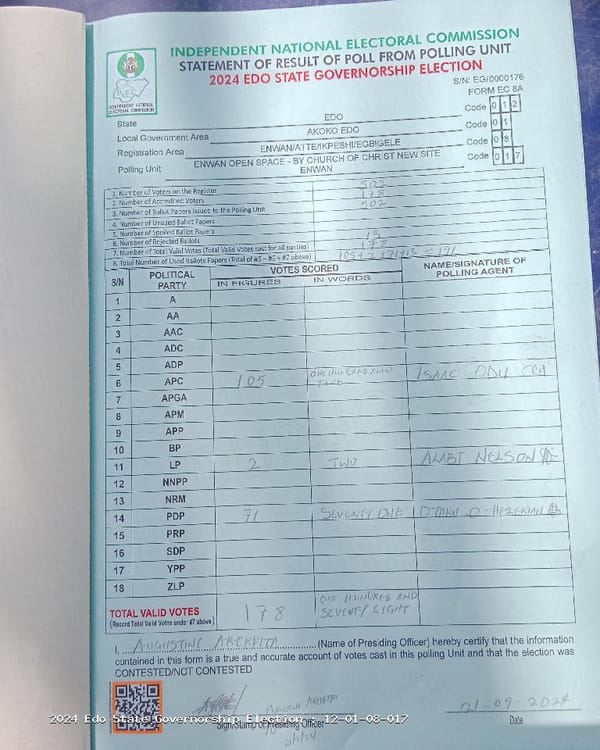 INDEPENDENT NATIONAL ELECTORAL COMMISSION
STATEMENT OF RESULT OF POLL FROM POLLING UNIT
2024 EDO STATE GOVERNORSHIP ELECTION
S/N: EG/0000176
FORM EC 8A
INDEPENDENT NATIONAL ELECTORAL COMMISSION
State EDO Code 0 1 2
Local Government Area AKOKO EDO Code 0 1
Registration Area ENWAN/ATTE/IKPESHI/EGBIGELE Code 0 8
Polling Unit ENWAN OPEN SPACE - BY CHURCH OF CHRIST NEW SITE ENWAN Code 0 1 7
1. Number of Voters on the Register
2. Number of Accredited Voters
3. Number of Ballot Papers Issued to the Polling Unit 502
4. Number of Unused Ballot Papers
5. Number of Spoiled Ballot Papers
6. Number of Rejected Ballots 13
7. Number of Total Valid Votes (Total Valid Votes cast for all parties) 178
8. Total Number of Used Ballots Papers (Total of #5 + #6 + #7 above) = 191
S/N POLITICAL PARTY VOTES SCORED NAME/SIGNATURE OF POLLING AGENT
IN FIGURES IN WORDS
1 A
2 AA
3 AAC
4 ADC
5 ADP
6 APC 105 ONE HUNDRED AND FIVE ISAAC ODU
7 APGA
8 APM
9 APP
10 BP
11 LP 2 TWO ALABI NELSON
12 NNPP
13 NRM
14 PDP 71 SEVENTY ONE O. HEZEKIAH
15 PRP
16 SDP
17 YPP
18 ZLP
TOTAL VALID VOTES 178 ONE HUNDRED AND SEVENTY EIGHT
(Record Total Valid Votes under #7 above)
I, AUGUSTINE (Name of Presiding Officer) hereby certify that the information
contained in this form is a true and accurate account of votes cast in this polling Unit and that the election was
CONTESTED/NOT CONTESTED
21-09-2024
Sign/Stamp of Presiding Officer Date
2024 Edo State Governorship Election - 12-01-08-017